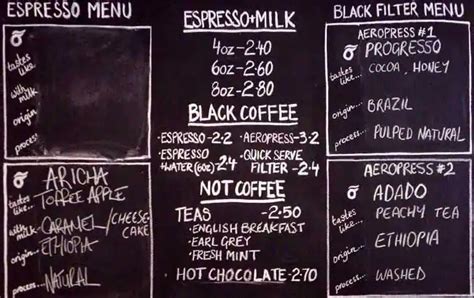 ESPRESSO MENU
tastes like...
with milk...
origin...
process...
ARICHA
tastes like... TOFFEE APPLE
with milk... CARAMEL/CHEESE-
CAKE
origin... ETHIOPIA
process...
NATURAL
ESPRESSO+MILK
4oz-2.40
6oz-2.60
8oz-2.80
BLACK COFFEE
•ESPRESSO-2.2 •AEROPRESS-3.2
•ESPRESSO •QUICK SERVE
+WATER(6oz) 2.4 FILTER -2.4
NOT COFFEE
TEAS -2.50
•ENGLISH BREAKFAST
•EARL GREY
•FRESH MINT
HOT CHOCOLATE-2.70
BLACK FILTER MENU
AEROPRESS #1
PROGRESSO
tastes like... COCOA, HONEY
origin... BRAZIL
process... PULPED NATURAL
AEROPRESS #2
ADADO
tastes like... PEACHY TEA
origin... ETHIOPIA
process... WASHED